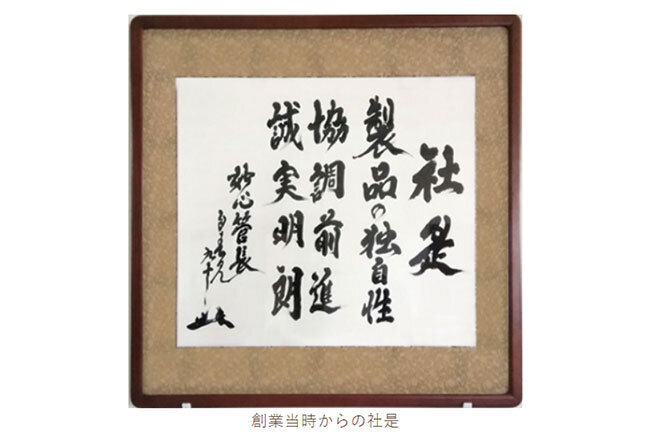 社是
製品の独自性
協調前進
誠実明朗
妙心管長
九十
創業当時からの社是